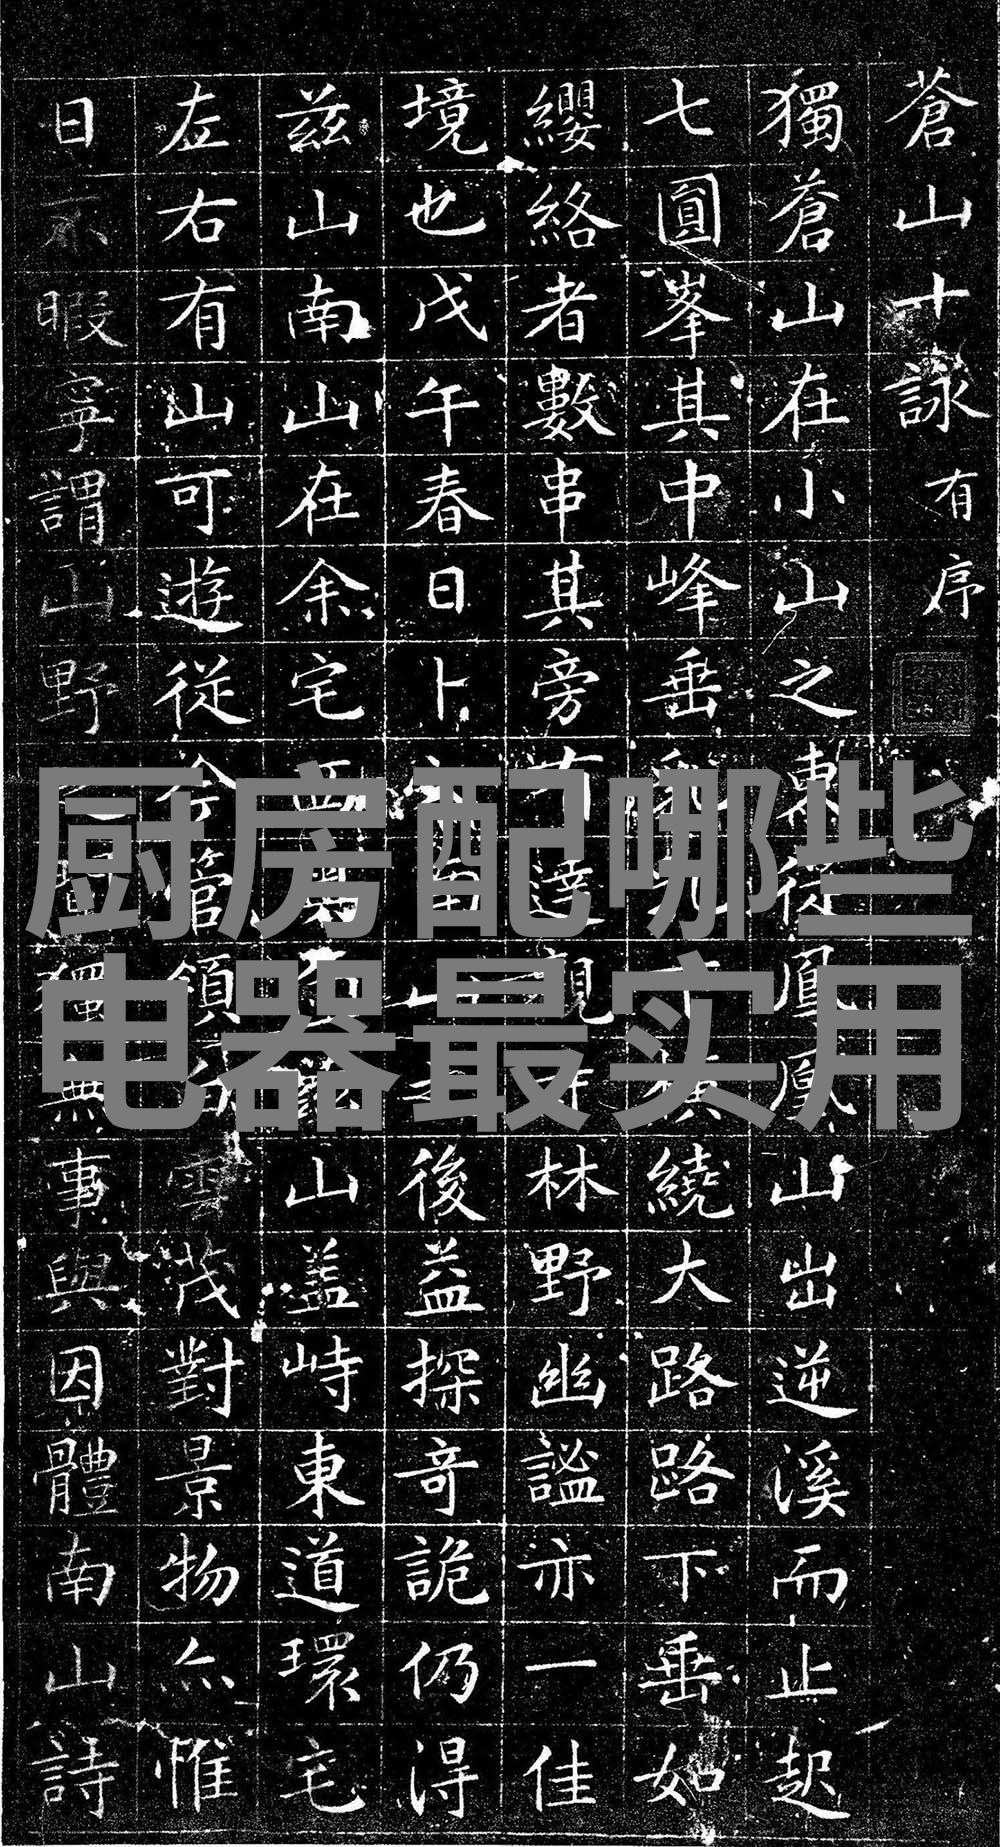 蒼山十詠 有序
獨蒼山在小山之東從鳳凰山出逆溪而止起
七圓峯其中峰垂橫繞大路路下垂如
纓絡者數串其旁有達觀寺林野幽謐亦一佳
境也戊午春日卜山後益探奇詭仍得
茲山南山在余宅西其山盖峙東道環宅
左右有山可遊從今管領白雲茂對景物亦惟
日不暇寧謂山野獨無事與因體南山詩
厨房配哪些
电器最实用